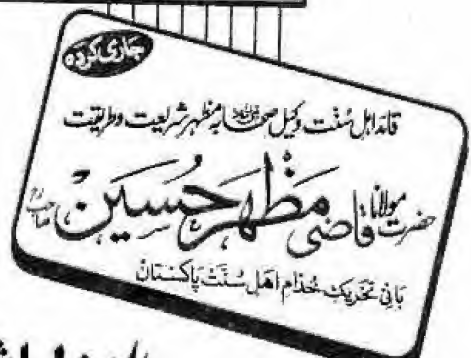 جاری کردہ
قائد اہل سُنّت وکیل صحابہؓ مظہر شریعت وطریقت
حضرت مولانا قاضی مظہر حسین صاحبؒ
بانی تحریک خدام اہل سُنّت پاکستان